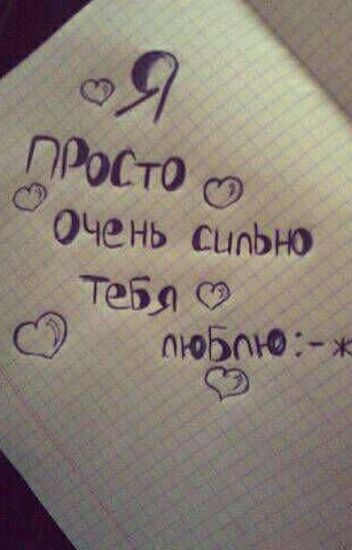 Я
ПРОСТО
ОЧЕНЬ СИЛЬНО
ТЕБЯ
ЛЮБЛЮ :-ж